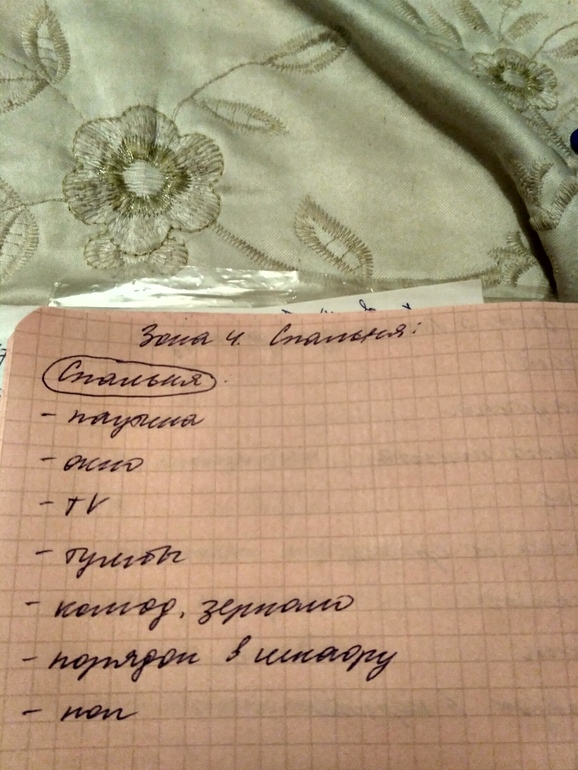 Зона 4. Спальня:
Спальня.
- паутина
- окно
- TV
- тумбы
- комод, зеркало
- порядок в шкафу
- пол